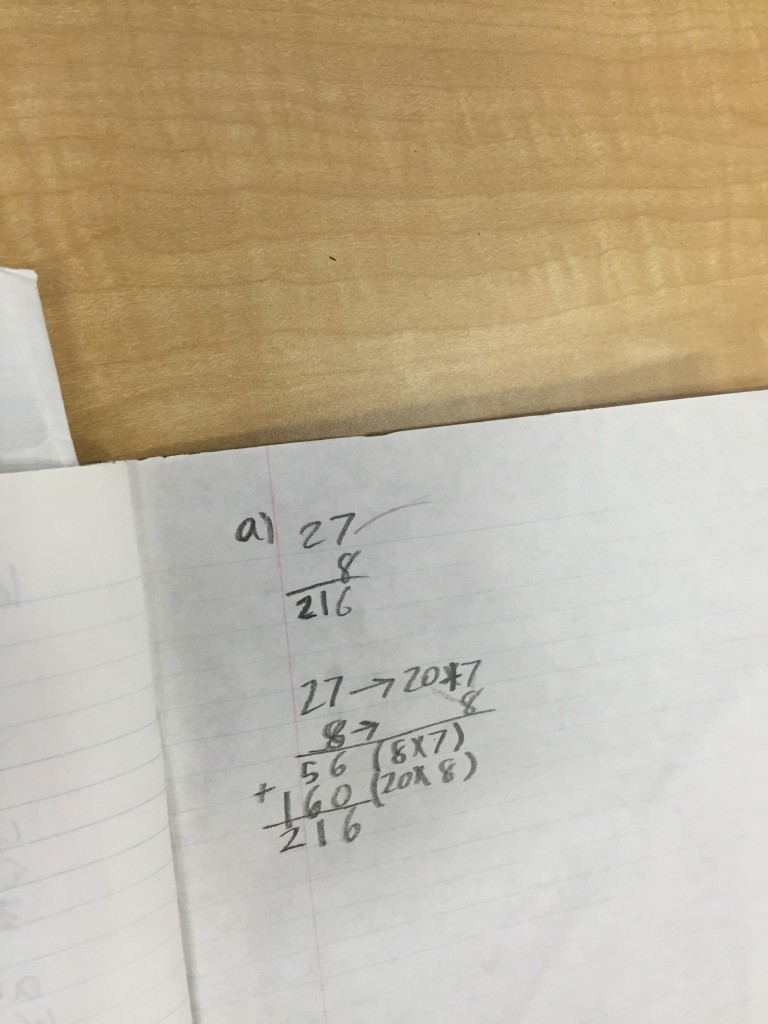 a) 27
8
216
27 → 20+7
8 → 8
56 (8x7)
+ 160 (20x8)
216